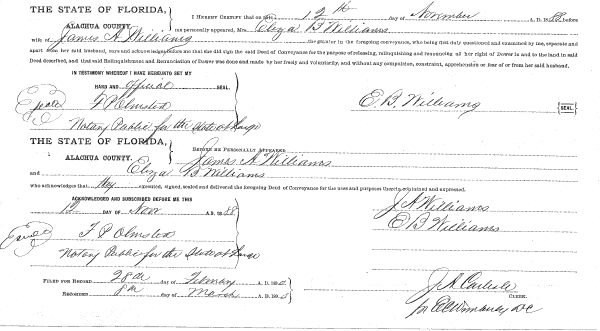 THE STATE OF FLORIDA,
ALACHUA COUNTY.
I HEREBY CERTIFY that on this 12th day of November A. D. 1888, before
me personally appeared, Mrs. Eliza B Williams
wife of James A Williams the grantor in the foregoing conveyance, who being first duly questioned and examined by me, separate and
apart from her said husband, says and acknowledges to me that she did sign the said Deed of Conveyance for the purpose of releasing, relinquishing and renouncing all her right of Dower in and to the land in said
Deed described, and that said Relinquishment and Renunciation of Dower was done and made by her freely and voluntarily, and without any compulsion, constraint, apprehension or fear of or from her said husband.
IN TESTIMONY WHEREOF I HAVE HEREUNTO SET MY
HAND AND official SEAL.
F P Olmsted
Notary Public for the State at Large
E. B. Williams {SEAL}
THE STATE OF FLORIDA,
ALACHUA COUNTY.
BEFORE ME PERSONALLY APPEARED
James A Williams
and Eliza B Williams
who acknowledges that they executed, signed, sealed and delivered the foregoing Deed of Conveyance for the uses and purposes therein contained and expressed.
ACKNOWLEDGED AND SUBSCRIBED BEFORE ME THIS
12 DAY OF Nov A. D. 1888
J A Williams
E B Williams
F P Olmsted
Notary Public for the State at Large
FILED FOR RECORD 28th day of February A. D. 189
RECORDED 8th day of March A. D. 189
J A Carlisle
CLERK.
DC